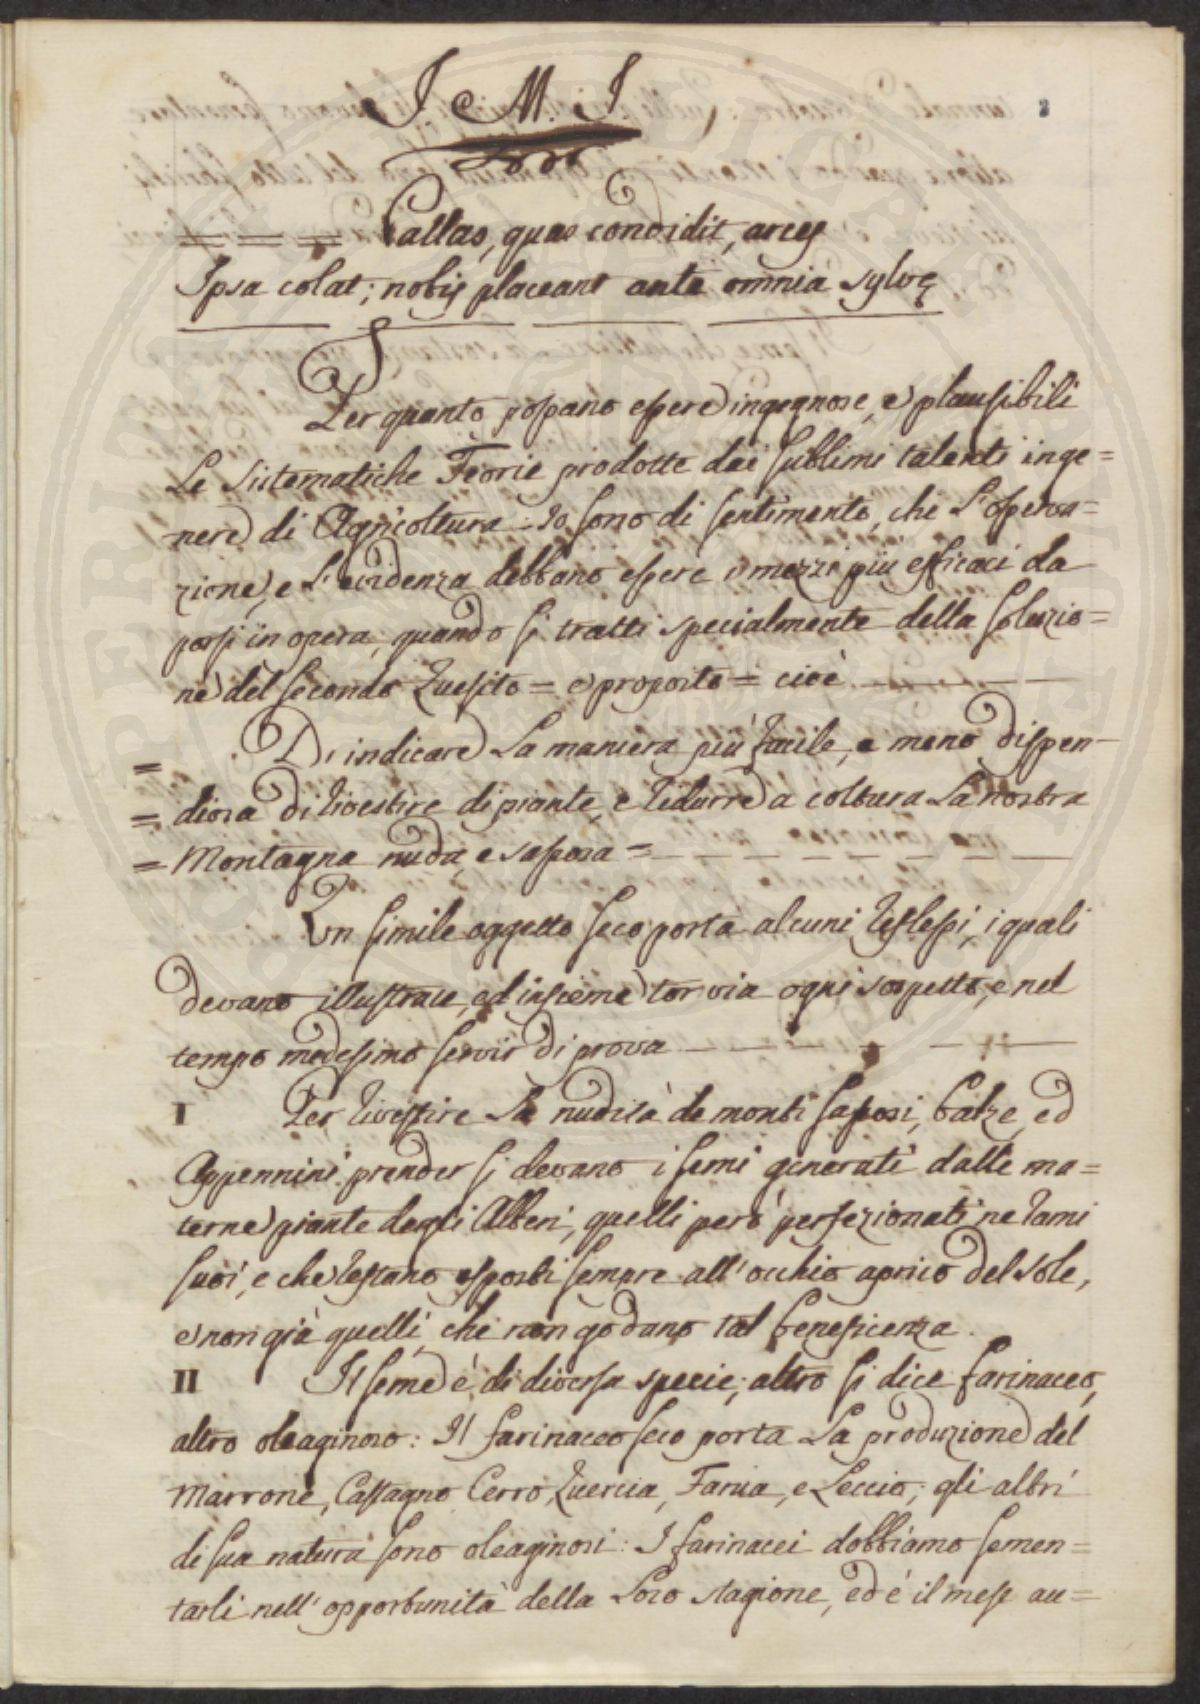 J. M. J.
2
= = = Pallas, quas condidit, arces
Ipsa colat; nobis placeant ante omnia sylvę
Per quanto possano essere ingegnose, e plausibili
Le Sistematiche Teorie prodotte dai sublimi talenti in ge=
nere di Agricoltura. Io sono di sentimento, che L'osserva=
zione, e L'evidenza debbano essere i mezzi più efficaci da
porsi in opera, quando si tratti specialmente della soluzio=
ne del secondo Quesito = esproposto = cioè
= Di indicare La maniera più facile, e meno dispen-
= diosa di rivestire di piante, e ridurre a coltura La nostra
= Montagna nuda, e sassosa =
Un simile oggetto seco porta alcuni riflessi, i quali
devano illustrare, ed insieme tor via ogni sospetto, e nel
tempo medesimo servir di prova
I Per rivestire La nudità de monti sassosi, balze, ed
Appennini prender si devano i semi generati dalle ma=
terne piante degli Alberi, quelli però perfezionati ne rami
suoi, e che restano esposti sempre all'occhio aprico del sole,
e non già quelli, che non godano tal beneficenza.
II Il seme è di diversa specie; altro si dice farinaceo,
altro oleaginoso: Il farinaceo seco porta La produzione del
Marrone, Castagno, Cerro, Quercia, Farnia, e Leccio; gli altri
di sua natura sono oleaginosi: I farinacei dobbiamo semen=
tarli nell'opportunità della Loro stagione, ed è il mese au=